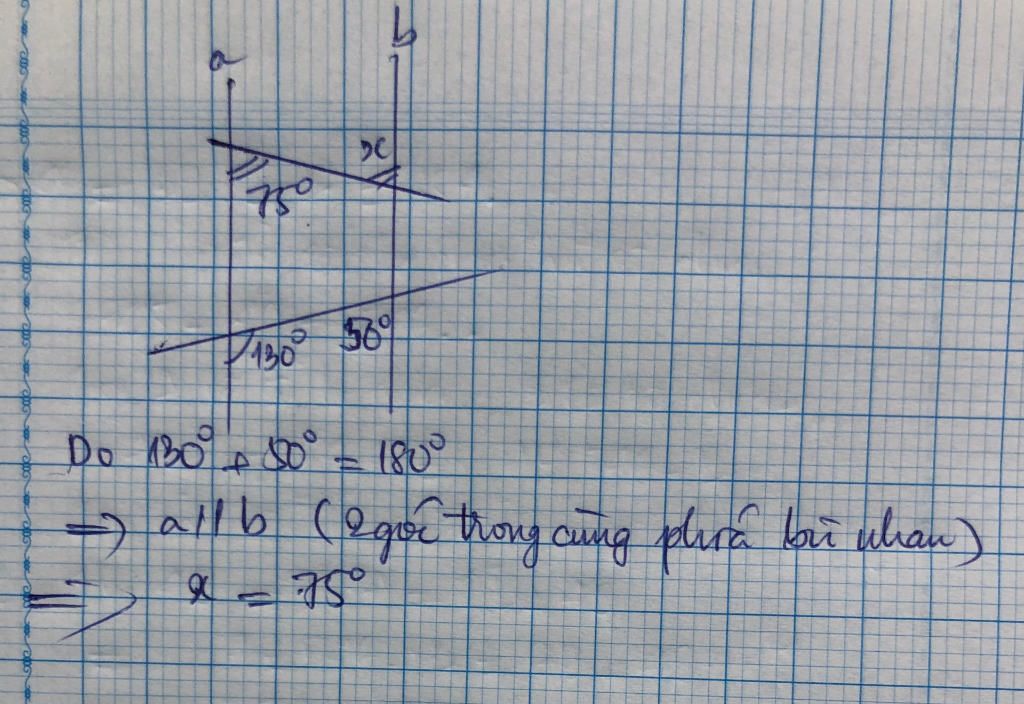 a
b
x
75°
130°
50°
Do 130° + 50° = 180°
=> a // b (2 góc trong cùng phía bù nhau)
=> x = 75°